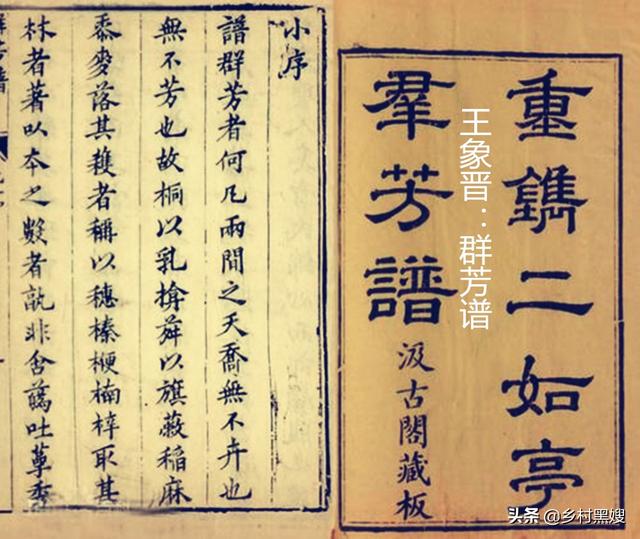 重鐫二如亭
羣芳譜
汲古閣藏板
王象晋：群芳谱
小序
譜群芳者何凡兩間之夭喬無不卉也
無不芳也故桐以乳揜蕣以旗蔽稲麻
黍麥落其穫者稱以穗榛楩楠梓取其
材者著以夲之數者孰非含蘤吐萼秀
头条 @乡村黑嫂